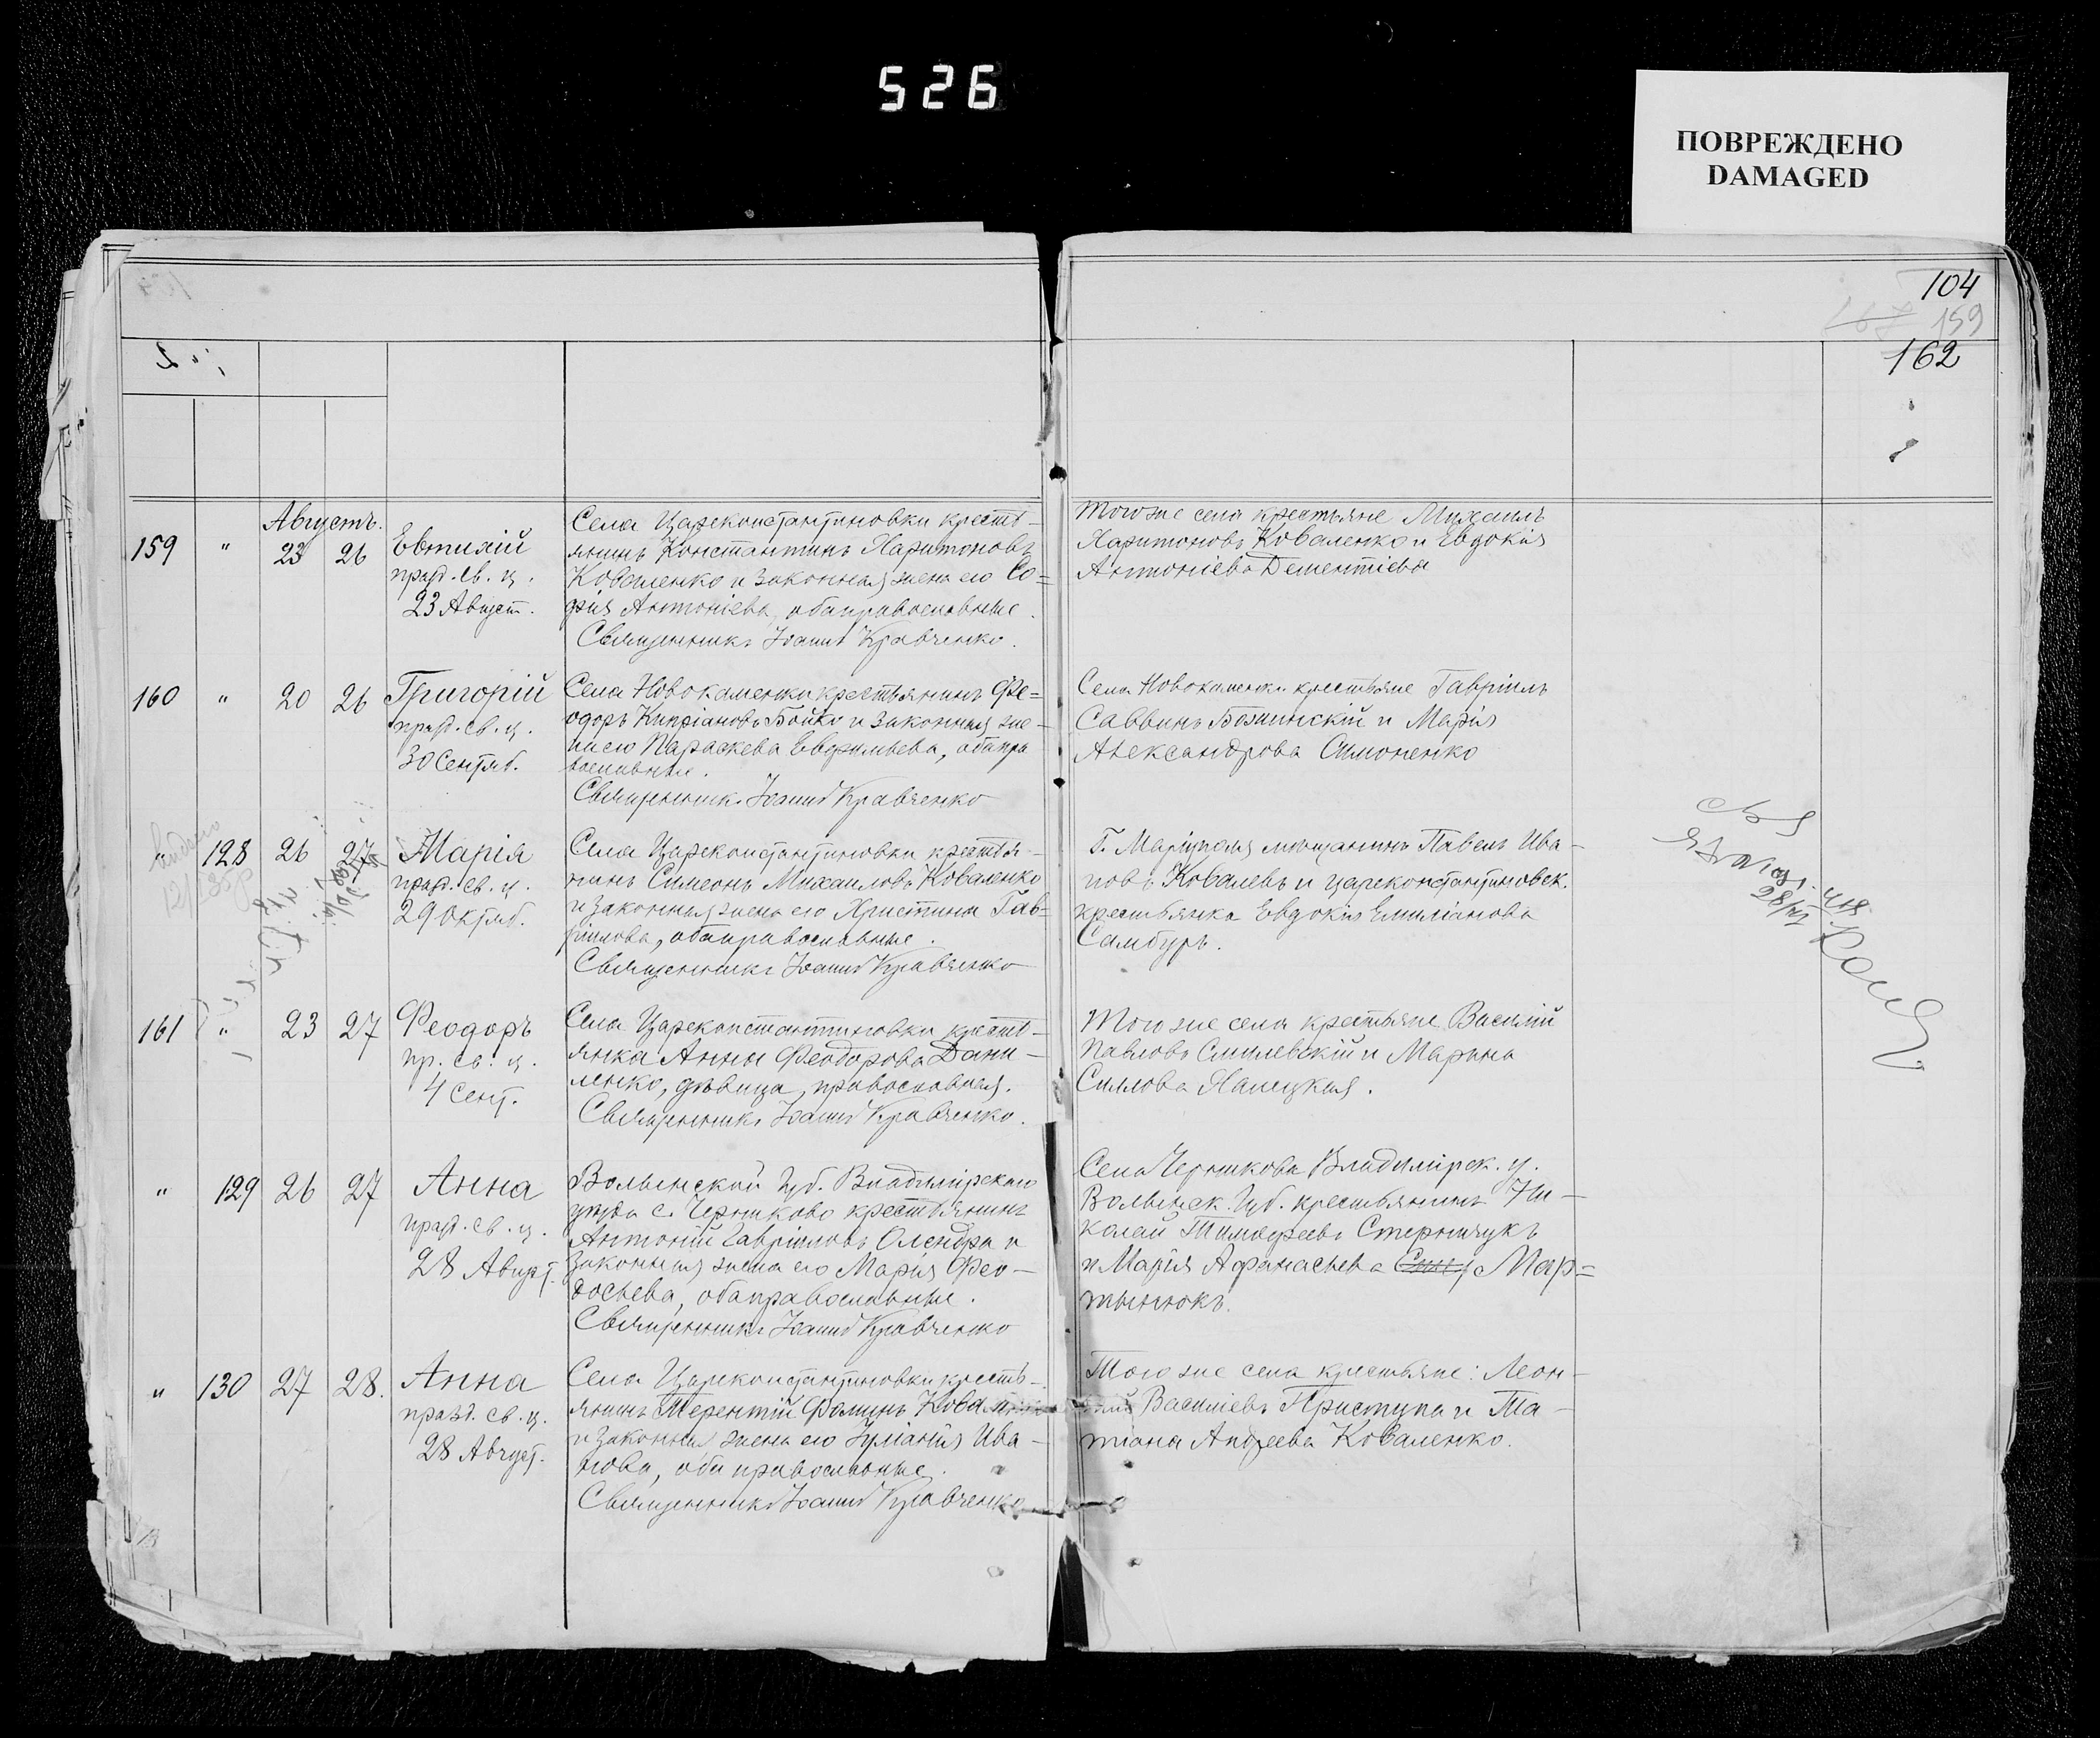 526
ПОВРЕЖДЕНО
DAMAGED
104
159
162
Августъ.
159 " 23 26
Евтихій
празд. св. ц.
23 Август.
Села Цареконстантиновки кресть-
янинъ Константинъ Харитоновъ
Коваленко и законная жена его Со=
фія Антоніева, оба православные.
Священникъ Іоаннъ Кравченко.
Того же села крестьяне Михаилъ
Харитоновъ Коваленко и Евдокія
Антоніева Дементіева
160 " 20 26
Григорій
празд. св. ц.
30 Сентяб.
Села Новокаменки крестьянинъ Фе=
одоръ Кипріановъ Бойко и законная же-
на его Параскева Евфимьева, оба пра
вославные.
Священникъ Іоаннъ Кравченко
Села Новокаменки крестьяне Гавріилъ
Саввинъ и Марія
Александрова Симоненко
128 26 27
Марія
празд. св. ц.
29 Октяб.
Села Цареконстантиновки крестья-
нинъ Симеонъ Михаиловъ Коваленко
и законная жена его Христина Гав=
ріилова, оба православные.
Священникъ Іоаннъ Кравченко
Г. Маріуполя мѣщанинъ Павелъ Ива-
новъ Ковалевъ и цареконстантиновск.
крестьянка Евдокія Емиліанова
Самбуръ.
28/VI
161 " 23 27
Феодоръ
пр. св. ц.
4 Сент.
Села Цареконстантиновки кресть-
янка Анна Феодорова Дани-
ленко, дѣвица, православная.
Священникъ Іоаннъ Кравченко.
Того же села крестьяне Василій
Павловъ Смилевскій и Марина
" 129 26 27
Анна
празд. св. ц.
28 Август.
Волынской губ. Владимірскаго
уѣзда с. Чернково крестьянинъ
Антоній Гавріиловъ Олендра и
законная жена его Марія Фео-
досьева, оба православные.
Священникъ Іоаннъ Кравченко
Села Чернкова Владимірск. у.
Волынск. губ. крестьянинъ Ни-
колай Тимофеевъ Стерничукъ
и Марія Афанасьева Мар=
тынюкъ.
" 130 27 28.
Анна
празд. св. ц.
28 Август.
Села Цареконстантиновки кресть-
янинъ Терентій Фоминъ
и законная жена его Іуліанія Ива-
нова, оба православные.
Священникъ Іоаннъ Кравченко
Того же села крестьяне: Леон-
тій Василіевъ Приступа и Та-
тіана Андреева Коваленко.